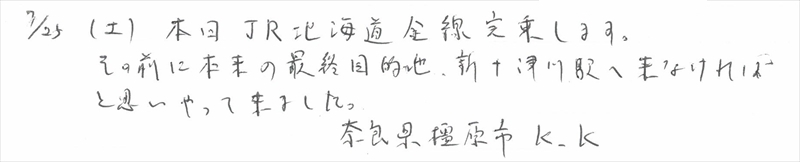 7/25 (土) 本日 JR北海道全線完乗します。
その前に本来の最終目的地、新十津川駅へ来なければ
と思いやって来ました。
奈良県橿原市 K.K